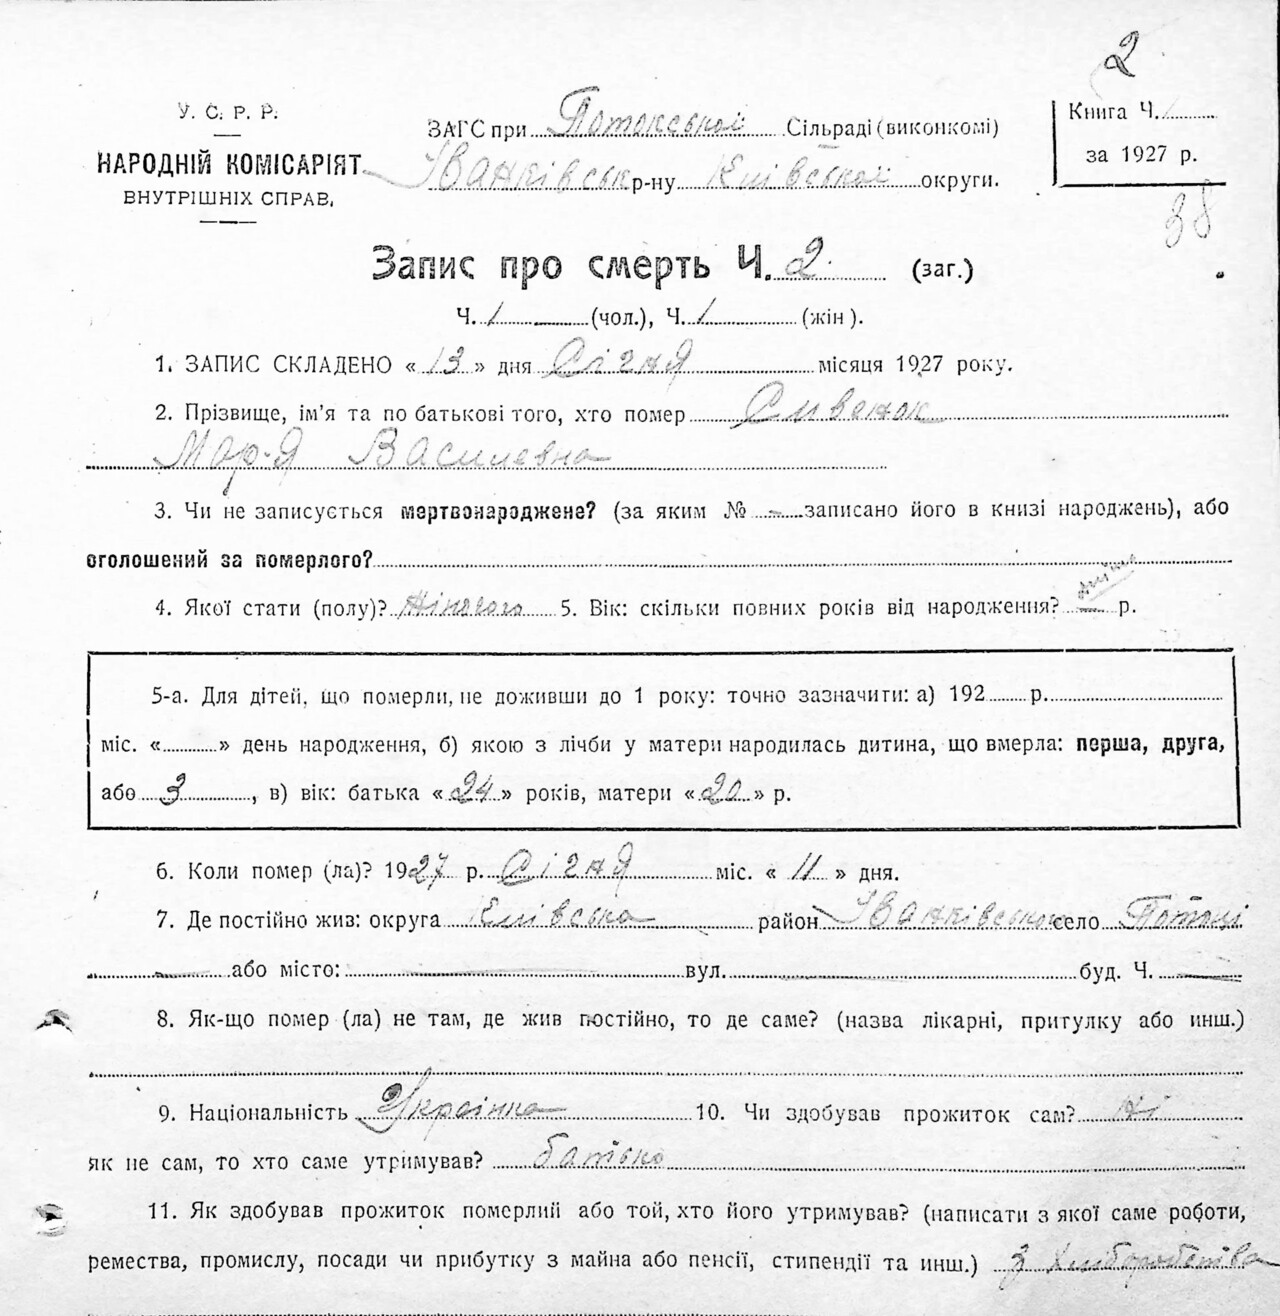 2
У. С. Р. Р.
НАРОДНІЙ КОМІСАРІЯТ
ВНУТРІШНІХ СПРАВ.
ЗАГС при Потокської Сільраді (виконкомі)
Іванківськ р-ну Київської округи.
Книга Ч. 1
за 1927 р.
38
Запис про смерть Ч. 2 (заг.)
Ч. 1 (чол.), Ч. 1 (жін).
1. ЗАПИС СКЛАДЕНО « 13 » дня Січня місяця 1927 року.
2. Прізвище, ім'я та по батькові того, хто помер Сивенок
Мар-я Василевна
3. Чи не записується мертвонароджене? (за яким № — записано його в книзі народжень), або
оголошений за померлого?
4. Якої стати (полу)? жіночого 5. Вік: скільки повних років від народження? — р.
5-а. Для дітей, що померли, не доживши до 1 року: точно зазначити: а) 192 р.
міс. « » день народження, б) якою з лічби у матери народилась дитина, що вмерла: перша, друга,
або 3, в) вік: батька « 24 » років, матери « 20 » р.
6. Коли помер (ла)? 1927 р. Січня міс. « 11 » дня.
7. Де постійно жив: округа Київська район Іванківськ село Потоки
— або місто: — вул. буд. Ч. —
8. Як-що помер (ла) не там, де жив постійно, то де саме? (назва лікарні, притулку або инш.)
9. Національність Украінка 10. Чи здобував прожиток сам? ні
як не сам, то хто саме утримував? батько
11. Як здобував прожиток померлий або той, хто його утримував? (написати з якої саме роботи,
ремества, промислу, посади чи прибутку з майна або пенсії, стипендії та инш.) з хліборобства